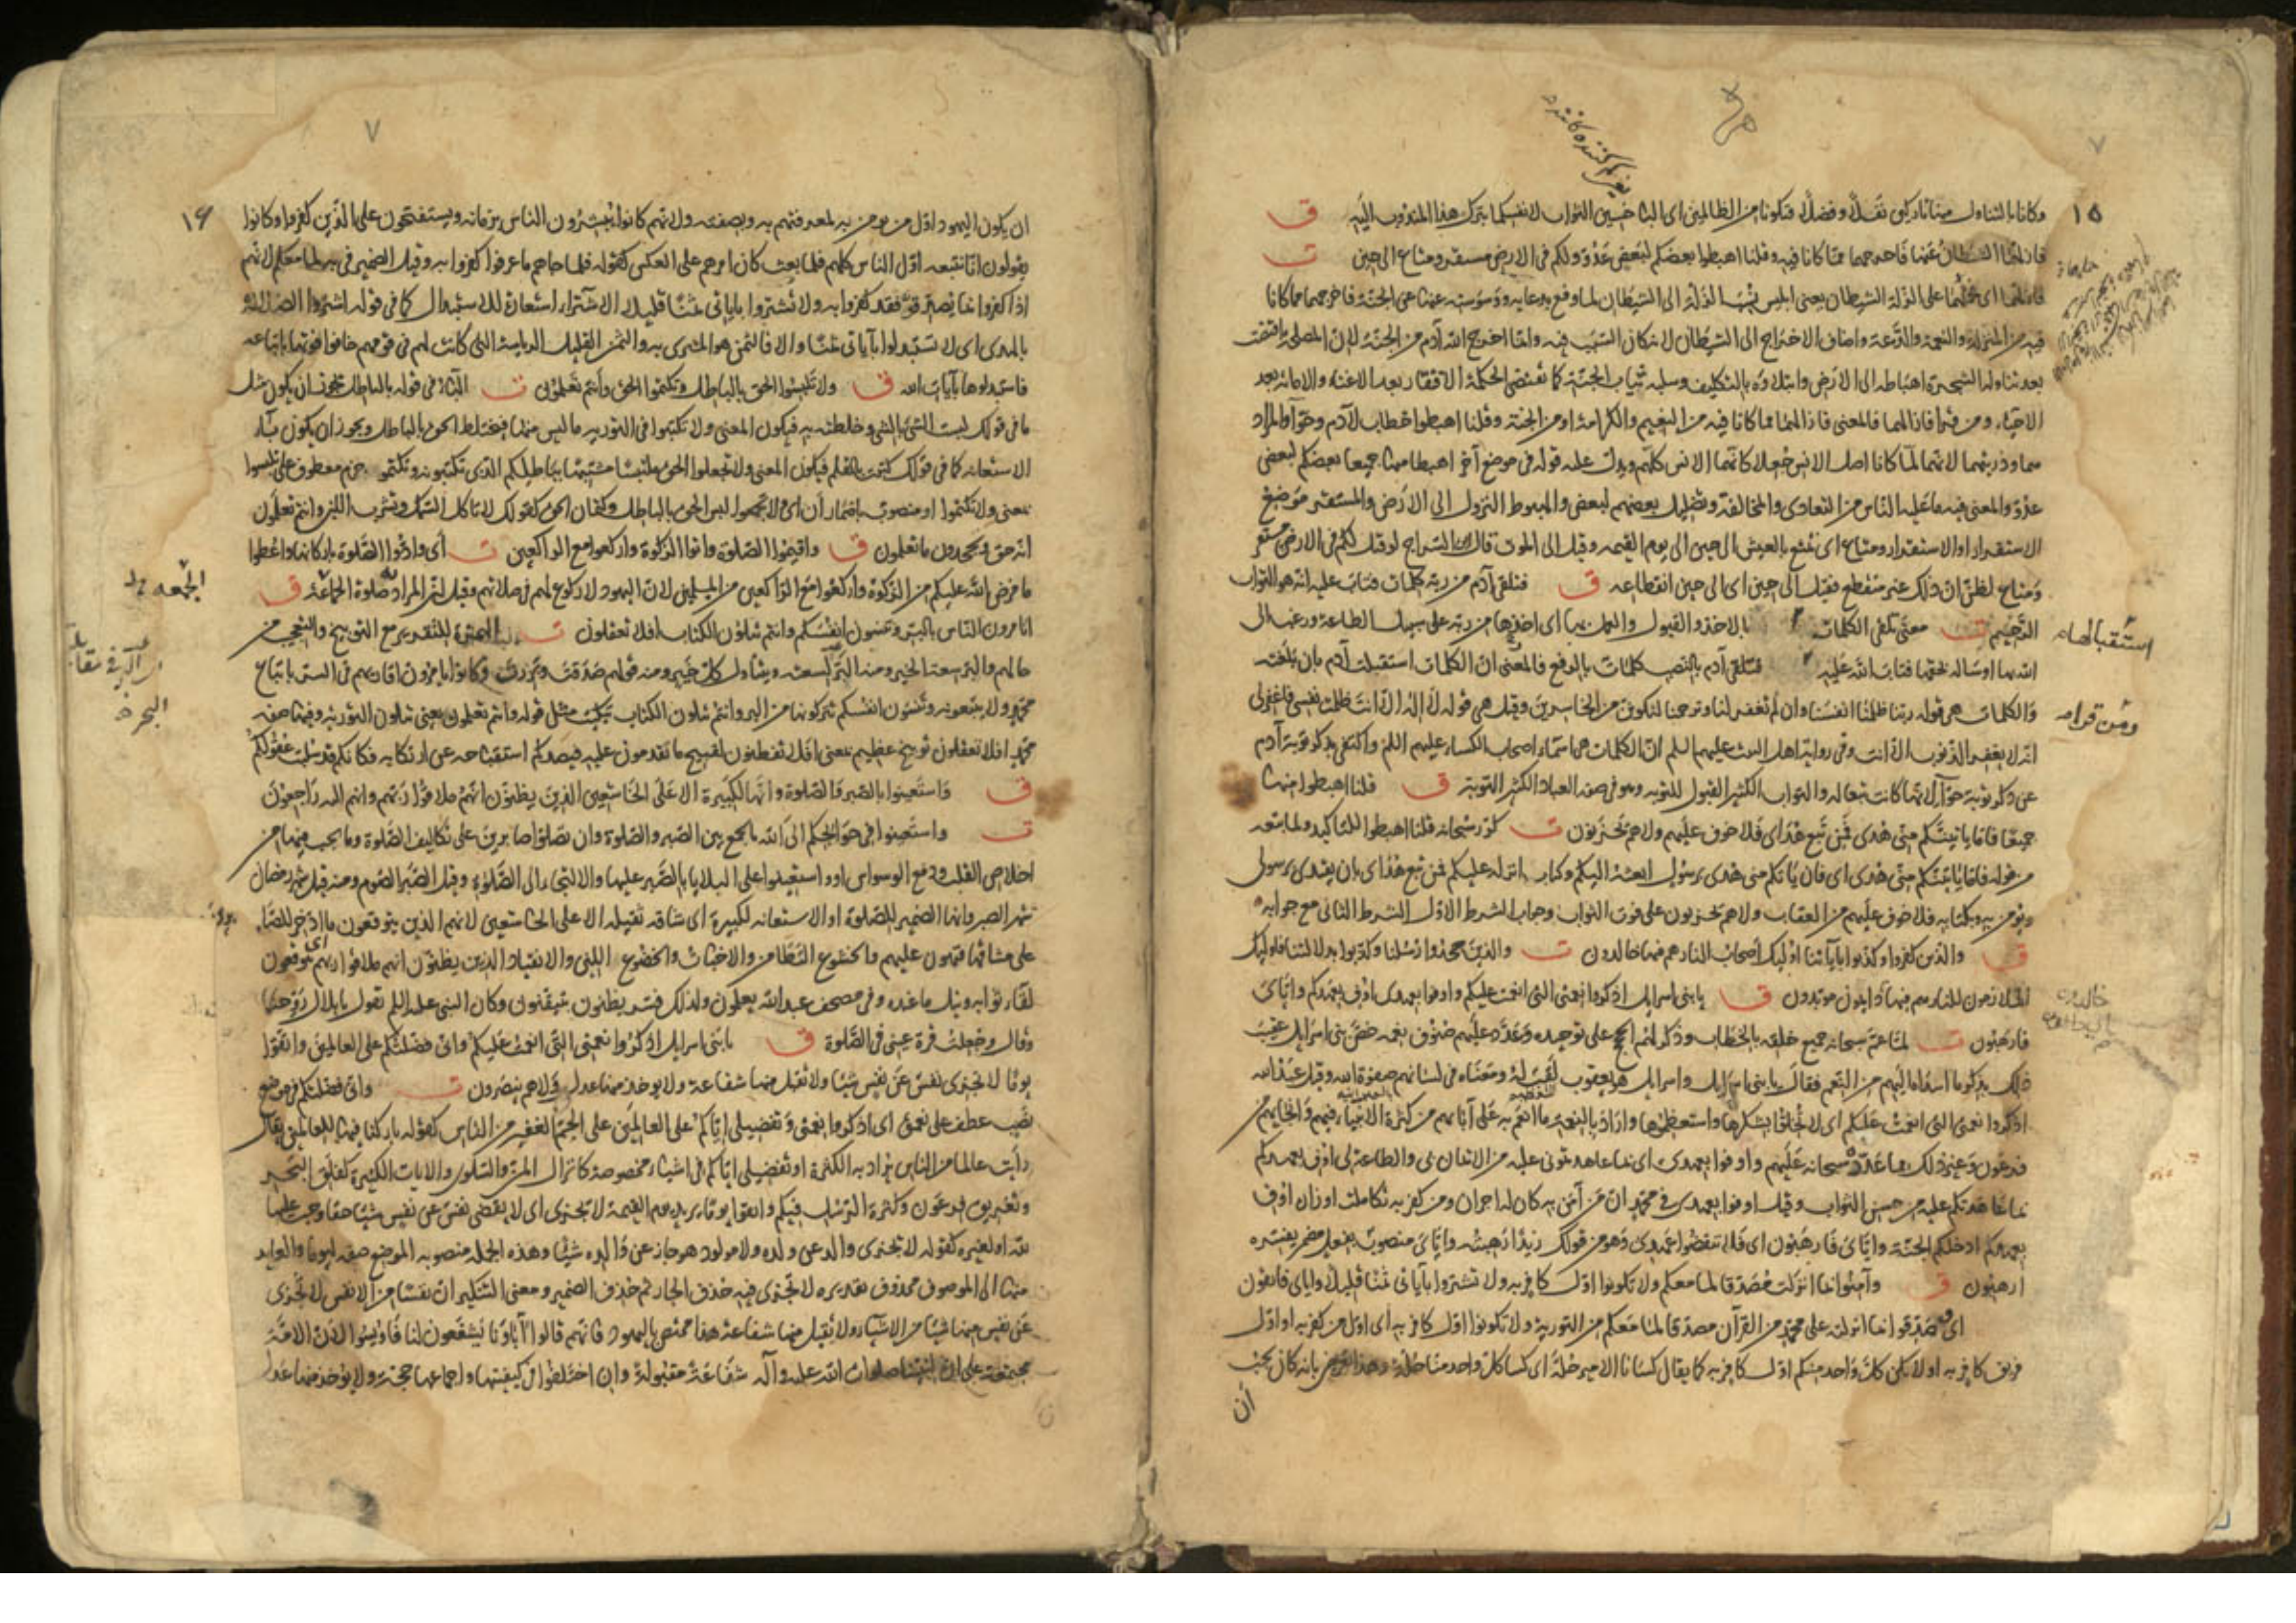 ١٥
وكانا بالتناول منها تاركين نفلا وفضلا فتكونا من الظالمين اى الباخسين الثواب لانفسكما بترك هذا المندوب اليه ق
فازلهما الشيطان عنها فاخرجهما مما كانا فيه وقلنا اهبطوا بعضكم لبعض عدو ولكم فى الارض مستقر ومتاع الى حين ت
فازلهما اى حملهما على الزلة الشيطان يعنى ابليس نسب الزلة الى الشيطان لما وقع بدعايه ووسوسته عنها عن الجنة فاخرجهما مما كانا
فيه من المنزلة والنعمة والدعة واضاف الاخراج الى الشيطان لانه كان السبب فيه وانما اخرج الله آدم من الجنة لان المصلحة اقتضت
بعد تناوله الشجرة اهباطه الى الارض وابتلاؤه بالتكليف وسلبه ثياب الجنة كما تقتضى الحكمة الافقار بعد الاغناء والاماتة بعد
الاحياء ومن قرأ فازالهما فالمعنى فازالهما مما كانا فيه من النعيم والكرامة او من الجنة وقلنا اهبطوا خطاب لآدم وحوا والمراد
هما وذريتهما لانهما لما كانا اصل الانس جعلا كانهما الانس كلهم ويدل عليه قوله فى موضع آخر اهبطا منها جميعا بعضكم لبعض
عدو والمعنى فيه ما عليه الناس من التعادى والمخالفة وتضليل بعضهم لبعض والهبوط النزول الى الارض والمستقر موضع
الاستقرار او الاستقرار ومتاع اى تمتع بالعيش الى حين الى يوم القيمه وقيل الى الموت قال ابن السراج لو قيل لكم فى الارض مستقر
ومتاع لظن ان ذلك غير منقطع فقيل الى حين اى الى حين انقطاعه ق فتلقى آدم من ربه كلمات فتاب عليه انه هو التواب
الرحيم ت معنى تلقى الكلمات بالاخذ والقبول والعمل بها اى اخذها من ربه على سبيل الطاعة ورغب الى
استقبالها
الله بها او ساله بحقها فتاب الله عليه فتلقى آدم بالنصب كلمات بالرفع فالمعنى ان الكلمات استقبلت آدم بان بلغته
ومن قرا
والكلمات هى قوله ربنا ظلمنا انفسنا وان لم تغفر لنا وترحمنا لنكونن من الخاسرين وقيل هى قوله لا اله الا انت ظلمت نفسى فاغفر لى
انه لا يغفر الذنوب الا انت وفى رواية اهل البيت عليهم السلم ان الكلمات هى اسماء اصحاب الكساء عليهم السلم واكتفى بذكر توبة آدم
عن ذكر توبة حوا لانها كانت تبعا له والتواب الكثير القبول للتوبه وهو فى صفه العباد الكثير التوبة ق قلنا اهبطوا منها
جميعا فاما ياتينكم منى هدى فمن تبع هداى فلا خوف عليهم ولا هم يحزنون ت كرر سبحانه قلنا اهبطوا للتاكيد ولما تبعه
من قوله فاما ياتينكم منى هدى اى فان ياتكم منى هدى برسول ابعثه اليكم وكتاب انزله عليكم فمن تبع هداى بان يقتدى برسولى
ويؤمن به وبكتابه فلا خوف عليهم من العقاب ولا هم يحزنون على فوت الثواب وجواب الشرط الاول الشرط الثانى مع جوابه
ق والذين كفروا وكذبوا بآياتنا اوليك اصحاب النار هم فيها خالدون ت والذين جحدوا رسلنا وكذبوا بدلائلنا فاوليك
الملازمون للنار هم فيها دايمون مؤبدون ق يا بنى اسرايل اذكروا نعمتى التى انعمت عليكم واوفوا بعهدى اوف بعهدكم واياى
فارهبون ت لما عم سبحانه جميع خلقه بالخطاب وذكر لهم الحجج على توحيده وعدد عليهم صنوف نعمه خص بنى اسرايل عقيب
ذلك بذكر ما اسداه اليهم من النعم فقال يا بنى اسرايل واسرايل هو يعقوب لقب له ومعناه فى لسانهم صفوة الله وقيل عبد الله
اذكروا نعمتى التى انعمت عليكم اى لا تخلوا بشكرها واستعظموها واراد بالنعمة ما انعم به على آبايهم من كثرة الانبياء فيهم وانجايهم من
فرعون وغير ذلك مما عدده سبحانه عليهم واوفوا بعهدى اى بما عاهدتمونى عليه من الايمان بى والطاعة لى اوف بعهدكم
بما عاهدتكم عليه من حسن الثواب وقيل اوفوا بعهدى فى محمد ان من آمن به كان له اجران ومن كفر به تكاملت اوزاره اوف
بعهدكم ادخلكم الجنة واياى فارهبون اى فلا تنقضوا عهدى وهو من قولك زيدا رهبته واياى منصوب بفعل مضمر يفسره
ارهبون ق وآمنوا بما انزلت مصدقا لما معكم ولا تكونوا اول كافر به ولا تشتروا بآياتى ثمنا قليلا واياى فاتقون
اى صدقوا بما انزلته على محمد من القرآن مصدقا لما معكم من التورية ولا تكونوا اول كافر به اى اول من كفر به او اول
فريق كافر به او لا يكن كل واحد منكم اول كافر به كما يقال كسانا الامير حلة اى كسا كل واحد منا حلة وهذا تعريض بانه كان يجب
ان
١٦
ان يكون اليهود اول من يومن به لمعرفتهم به وبصفته ولانهم كانوا يبشرون الناس بزمانه ويستفتحون على الذين كفروا وكانوا
يقولون انا نتبعه اول الناس كلهم فلما بعث كان امرهم على العكس كقوله فلما جاءهم ما عرفوا كفروا به وقيل الضمير فى به لما معكم لانهم
اذا كفروا بما يصدقه فقد كفروا به ولا تشتروا باياتى ثمنا قليلا الاشتراء استعارة للاستبدال كما فى قوله اشتروا الضلالة
بالهدى اى لا تستبدلوا بآياتى ثمنا والا فالثمن هو المشترى به والثمن القليل الرياسة التى كانت لهم فى قومهم خافوا فوتها باتباعه
فاستبدلوها بآيات الله ق ولا تلبسوا الحق بالباطل وتكتموا الحق وانتم تعلمون ت الباء فى قوله بالباطل يجوز ان يكون مثل
ما فى قولك لبست الشئ بالشئ وخلطته به فيكون المعنى ولا تكتبوا فى التورية ما ليس منها فيختلط الحق بالباطل ويجوز ان يكون باء
الاستعانه كما فى قولك كتبت بالقلم فيكون المعنى ولا تجعلوا الحق ملتبسا مشتبها بباطلكم الذى تكتبونه وتكتموا جزم معطوف على تلبسوا
بمعنى ولا تكتموا او منصوب باضمار ان اى ولا تجمعوا لبس الحق بالباطل وكتمان الحق كقولك لا تاكل السمك وتشرب اللبن وانتم تعلمون
انه حق وتجحدون ما تعلمون ق واقيموا الصلوة واتوا الزكوة واركعوا مع الراكعين ت اى وادوا الصلوة باركانها واعطوا
ما فرض الله عليكم من الزكوة واركعوا مع الراكعين من المسلمين لان اليهود لا ركوع لهم فى صلاتهم وقيل ان المراد به صلوة الجماعة ق
الجمعه
اتامرون الناس بالبر وتنسون انفسكم وانتم تتلون الكتاب افلا تعقلون ت الهمزة للتقرير مع التوبيخ والتعجيب من
حالهم والبر سعة الخير ومنه البر لسعته ويتناول كل خير ومنه قولهم صدقت وبررت وكانوا يامرون اقاربهم فى السر باتباع
محمد ولا يتبعونه وتنسون انفسكم تتركونها من البر وانتم تتلون الكتاب تبكيت مثل قوله وانتم تعلمون يعنى تتلون التورية وفيها صفه
محمد افلا تعقلون توبيخ عظيم بمعنى افلا تفطنون لقبيح ما تقدمون عليه فيصدكم استقباحه عن ارتكابه فكانكم قد سلبت عقولكم
ق واستعينوا بالصبر والصلوة وانها لكبيرة الا على الخاشعين الذين يظنون انهم ملاقوا ربهم وانهم اليه راجعون
ت واستعينوا فى حوائجكم الى الله بالجمع بين الصبر والصلوة وان تصلوا صابرين على تكاليف الصلوة وما يجب فيها من
اخلاص القلب ودفع الوسواس او واستعينوا على البلايا بالصبر عليها والالتجاء الى الصلوة وقيل الصبر الصوم ومنه قيل شهر رمضان
شهر الصبر وانها الضمير للصلوة او الاستعانه لكبيرة اى شاقه ثقيله الا على الخاشعين لانهم الذين يتوقعون ما ادخر للصابرين
على مشاقها فتهون عليهم والخشوع التطامن والاخبات والخضوع اللين والانقياد الذين يظنون انهم ملاقوا ربهم اى يتوقعون
لقاء ثوابه ونيل ما عنده وفى مصحف عبد الله يعلمون ولذلك فسر يظنون بيتيقنون وكان النبى عليه السلم يقول يا بلال روحنا
وقال وجعلت قرة عينى فى الصلوة ق يا بنى اسرايل اذكروا نعمتى التى انعمت عليكم وانى فضلتكم على العالمين واتقوا
يوما لا تجزى نفس عن نفس شيئا ولا تقبل منها شفاعة ولا يوخذ منها عدل ولا هم ينصرون ت وانى فضلتكم فى موضع
نصب عطف على نعمتى اى اذكروا نعمتى وتفضيلى اياكم على العالمين على الجم الغفير من الناس كقوله باركنا فيها للعالمين يقال
رايت عالما من الناس يراد به الكثرة او تفضيلى اياكم فى اشياء مخصوصة كانزال المن والسلوى والايات الكثيرة كفلق البحر
وتغريق فرعون وكثرة الرسل فيكم واتقوا يوما يريد يوم القيمة لا تجزى اى لا تقضى نفس عن نفس شيئا حقا وجب عليها
لله او لغيره كقوله لا يجزى والد عن ولده ولا مولود هو جاز عن والده شيئا وهذه الجملة منصوبة الموضع صفه ليوما والعايد
منها الى الموصوف محذوف تقديره لا تجزى فيه فحذف الجار ثم حذف الضمير ومعنى التنكير ان نفسا من الانفس لا تجزى
عن نفس منها شيئا من الاشياء ولا يقبل منها شفاعة هذا مختص باليهود فانهم قالوا آباؤنا يشفعون لنا فاويسوا لان الامة
مجتمعة على ان لنبينا صلوات الله عليه وآله شفاعة مقبولة وان اختلفوا فى كيفيتها واجماعها حجة ولا يوخذ منها عدل